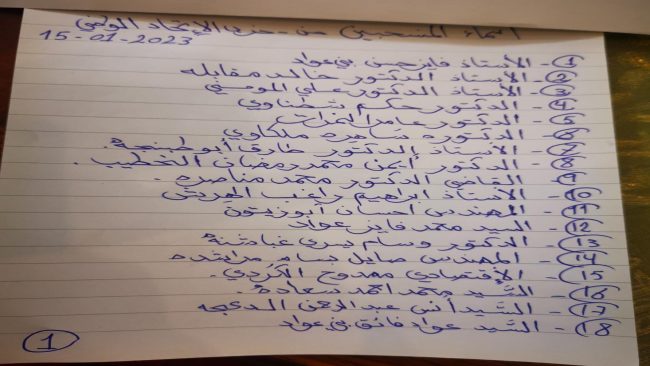 أسماء المنسحبين من حزب الإتحاد الوطني
15-01-2023
1- الأستاذ فايز حسن بني عواد
2- الأستاذ الدكتور خالد مقابله
3- الأستاذ الدكتور علي المومني
4- الدكتور حكم شطناوي
5- الدكتور عامر
6- الدكتوره ساهره ملكاوي
7- الأستاذ الدكتور طارق أبو طبنجة.
8- الدكتور أيمن محمد رمضان الخطيب.
9- القاضي الدكتور محمد مناصره.
10- الأستاذ ابراهيم راغب
11- المهندس احسان أبو زيتون
12- السيد محمد فايز عواد
13- الدكتور وسام يسري غبابشة
14- المهندس صايل بسام مراشده
15- الأقتصادي ممدوح الكردي.
16- السيد محمد احمد سعادة.
17- السيد أنس عبد الرحمن الدعجه
18- السيد عواد فائق بني عواد
1